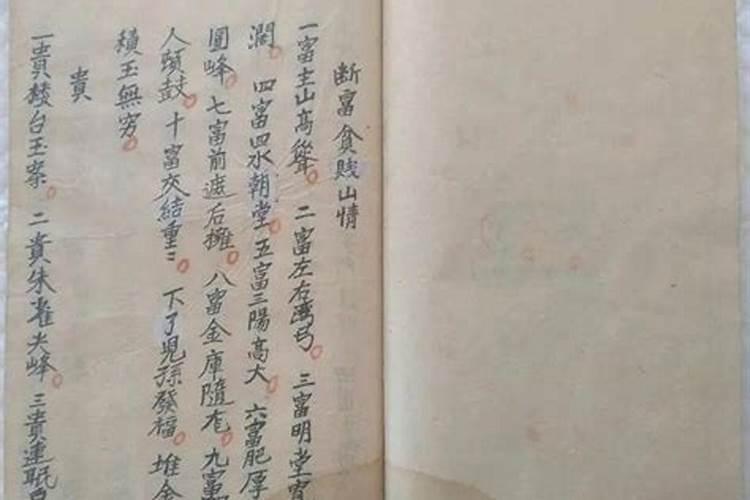 断富贪贱山情
一富主山高耸。二富左右湾弓。三富明堂寬
濶。四富四水朝堂。五富三陽高大。六富肥厚
圓峰。七富前遮后擁。八富金庫隨
人頭鼓。十富交結重〻。下了児孫發福。堆金
積玉無穷。
貴
一貴楼台玉案。二貴朱雀尖峰。三貴連